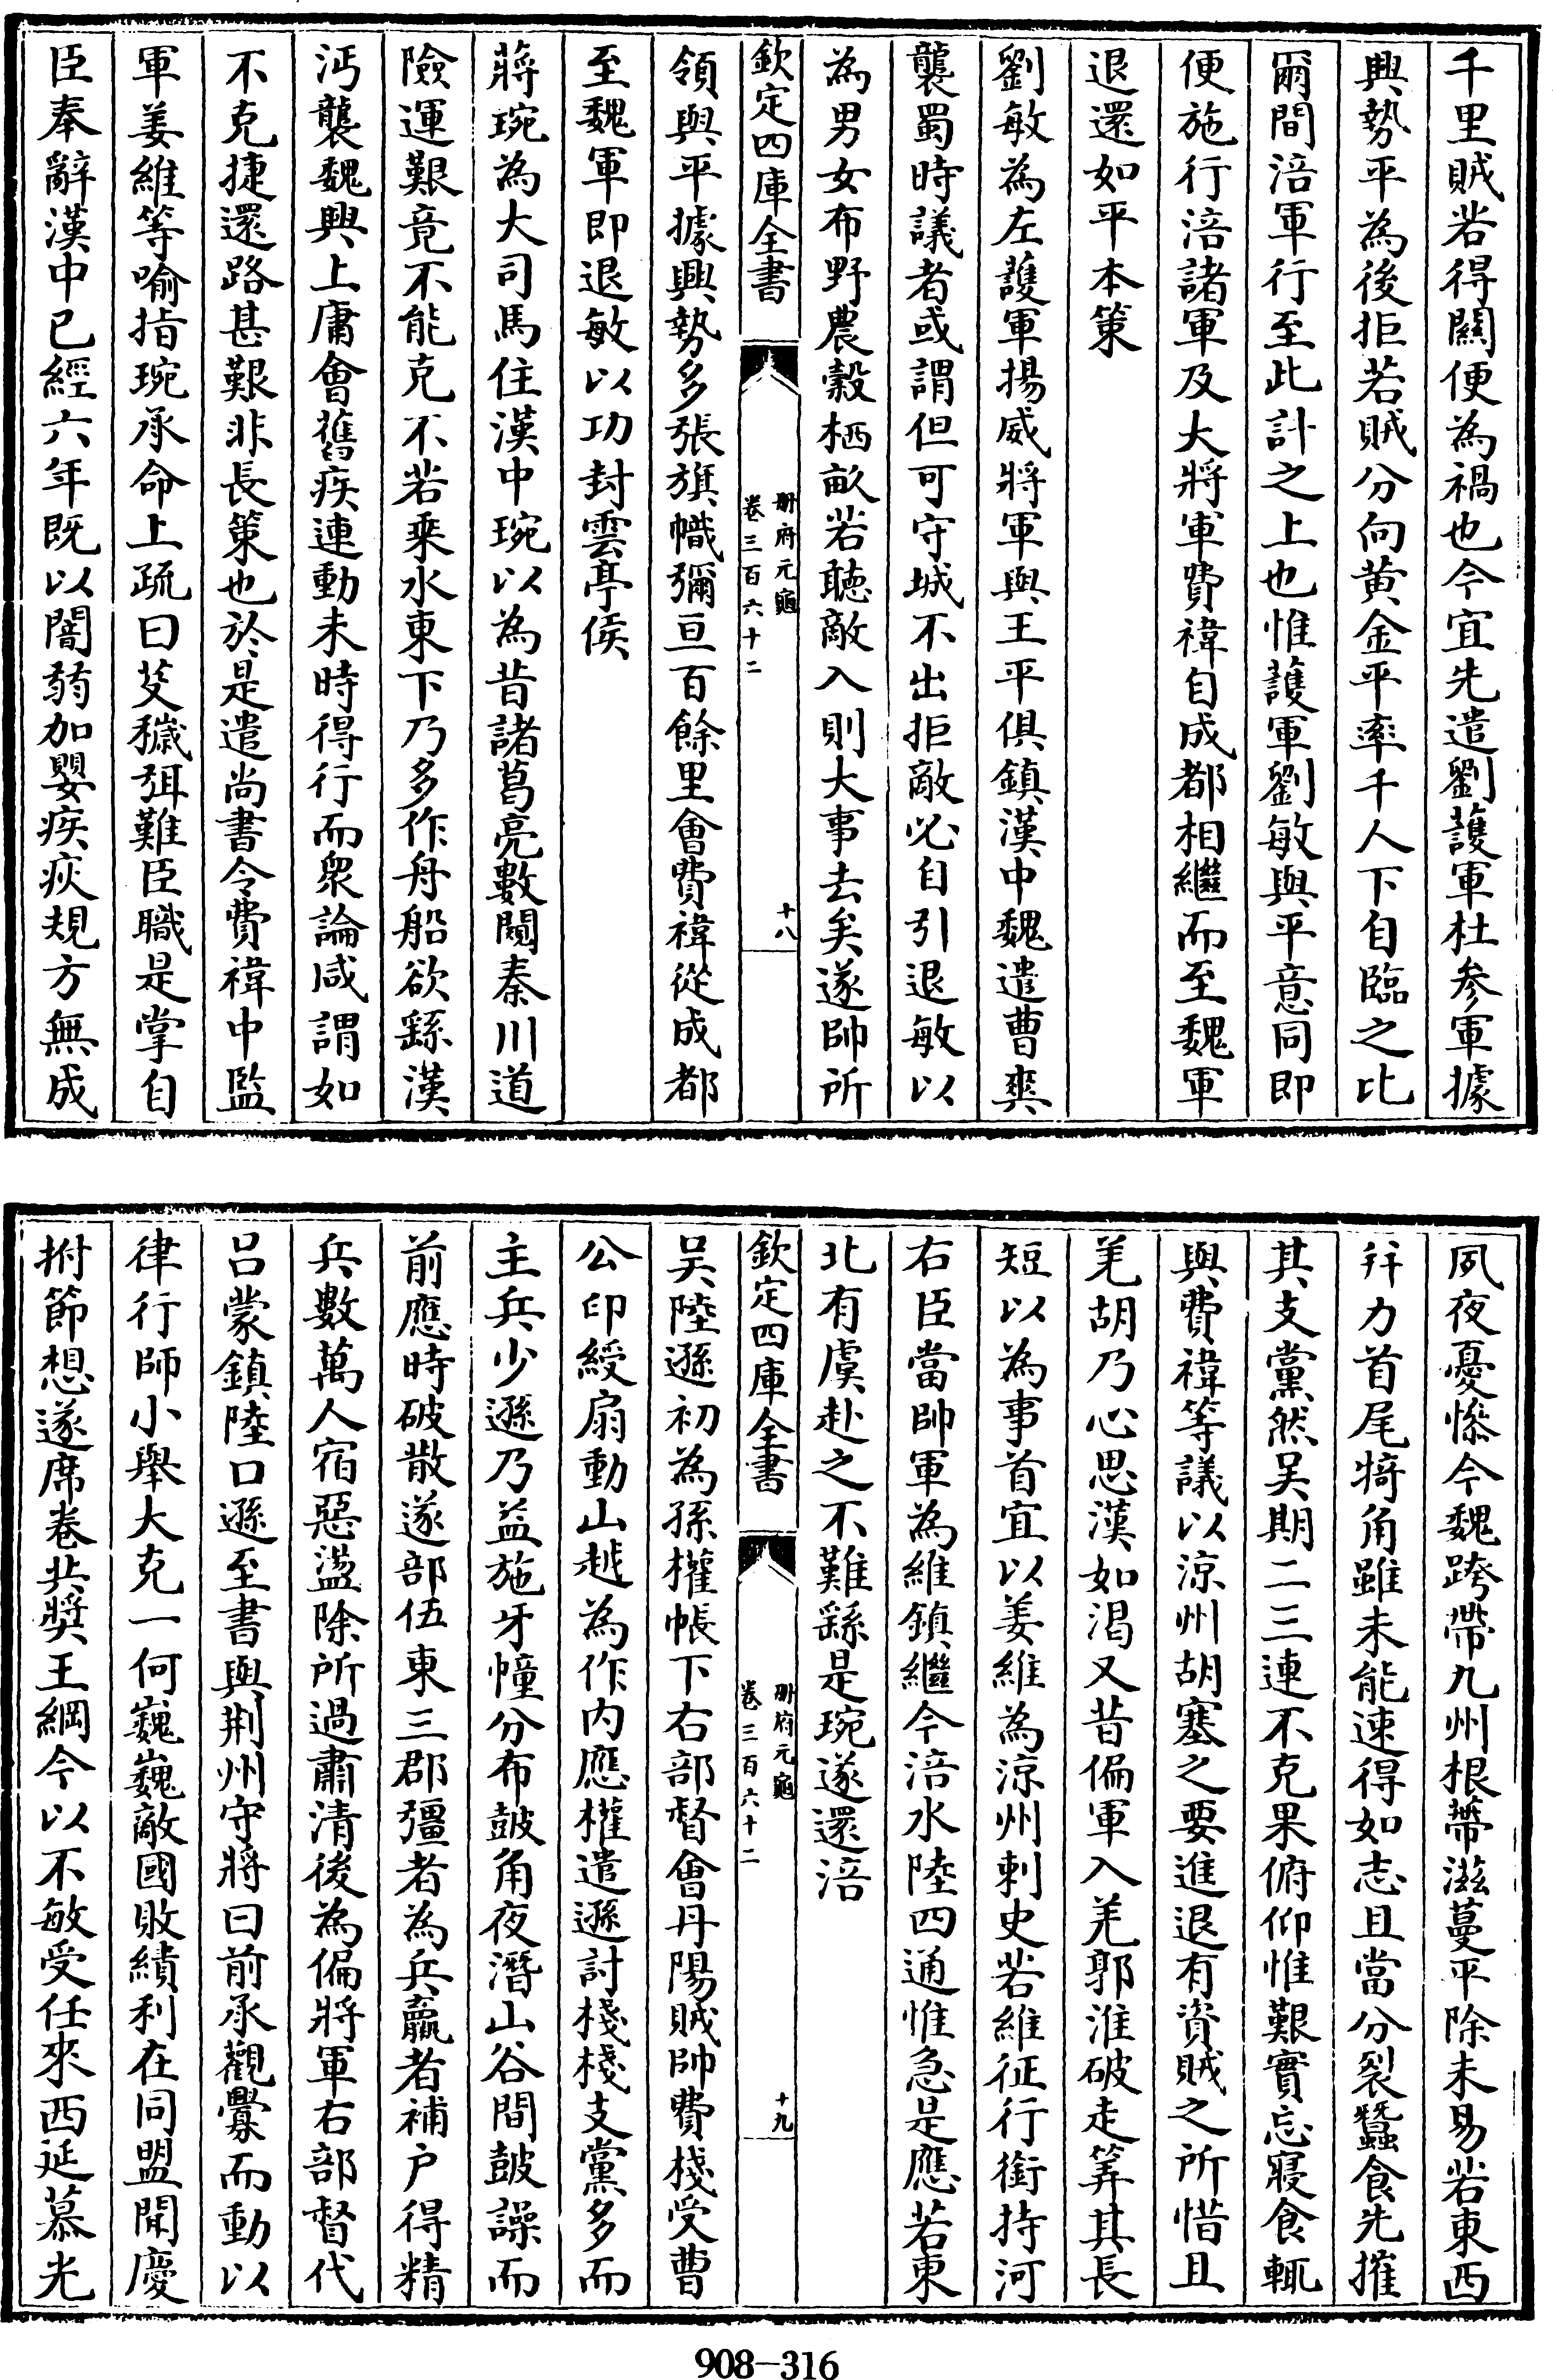 千里賊若得關便為禍也今宜先遣劉護軍杜參軍據
興勢平為後拒若賊分向黃金平率千人下自臨之比
爾間涪軍行至此計之上也惟護軍劉敏與平意同即
便施行涪諸軍及大將軍費禕自成都相繼而至魏軍
退還如平本策
劉敏為左護軍揚威將軍與王平俱鎮漢中魏遣曹爽
襲蜀時議者或謂但可守城不出拒敵必自引退敏以
為男女布野農穀栖畝若聽敵入則大事去矣遂帥所
欽定四庫全書
冊府元龜
卷三百六十二
十八
領與平據興勢多張旗幟彌亘百餘里會費禕從成都
至魏軍即退敏以功封雲亭侯
蔣琬為大司馬住漢中琬以為昔諸葛亮數闚秦川道
險運艱竟不能克不若乘水東下乃多作舟船欲繇漢
沔襲魏興上庸會舊疾連動未時得行而衆論咸謂如
不克捷還路甚艱非長策也於是遣尚書令費禕中監
軍姜維等喻指琬承命上疏曰芟穢弭難臣職是掌自
臣奉辭漢中已經六年既以闇弱加嬰疾疢規方無成
夙夜憂慘今魏跨帶九州根蔕滋蔓平除未易若東西
幷力首尾犄角雖未能速得如志且當分裂蠶食先摧
其支黨然吳期二三連不克果俯仰惟艱實忘寢食輒
與費禕等議以涼州胡塞之要進退有資賊之所惜且
羌胡乃心思漢如渴又昔偏軍入羌郭淮破走筭其長
短以為事首宜以姜維為涼州刺史若維征行銜持河
右臣當帥軍為維鎮繼今涪水陸四通惟急是應若東
北有虞赴之不難繇是琬遂還涪
欽定四庫全書
冊府元龜
卷三百六十二
十九
吳陸遜初為孫權帳下右部督會丹陽賊帥費棧受曹
公印綬扇動山越為作內應權遣遜討棧棧支黨多而
主兵少遜乃益施牙幢分布鼓角夜潛山谷間鼓譟而
前應時破散遂部伍東三郡彊者為兵羸者補户得精
兵數萬人宿惡盪除所過肅清後為偏將軍右部督代
呂蒙鎮陸口遜至書與荆州守將曰前承觀釁而動以
律行師小舉大克一何巍巍敵國敗績利在同盟聞慶
拊節想遂席卷共奬王綱今以不敏受任來西延慕光
908-316